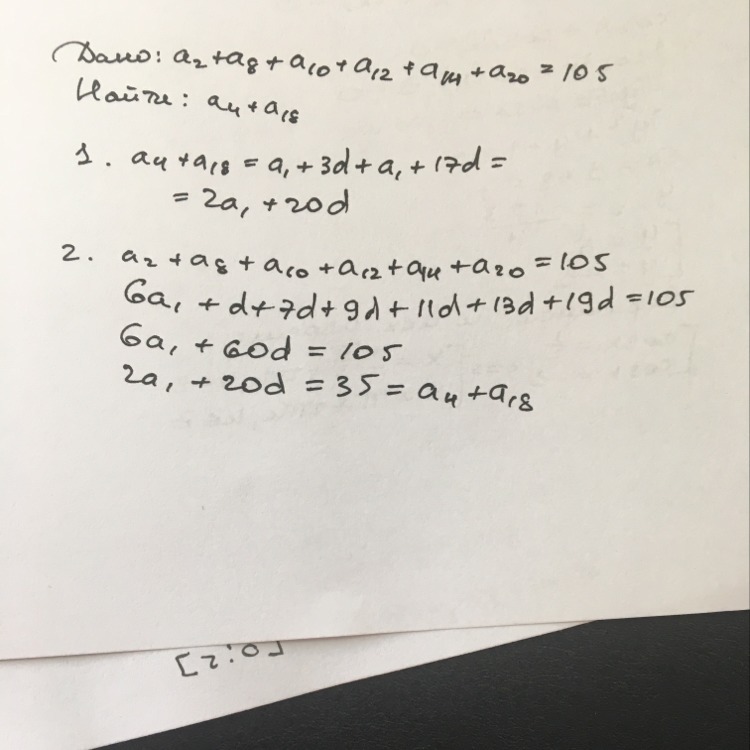 Дано: a₂+a₈+a₁₀+a₁₂+a₁₄+a₂₀=105
Найти: a₄+a₁₈
1. a₄+a₁₈ = a₁+3d+a₁+17d=
= 2a₁+20d
2. a₂+a₈+a₁₀+a₁₂+a₁₄+a₂₀=105
6a₁+d+7d+9d+11d+13d+19d=105
6a₁+60d=105
2a₁+20d=35=a₄+a₁₈
[0;2]